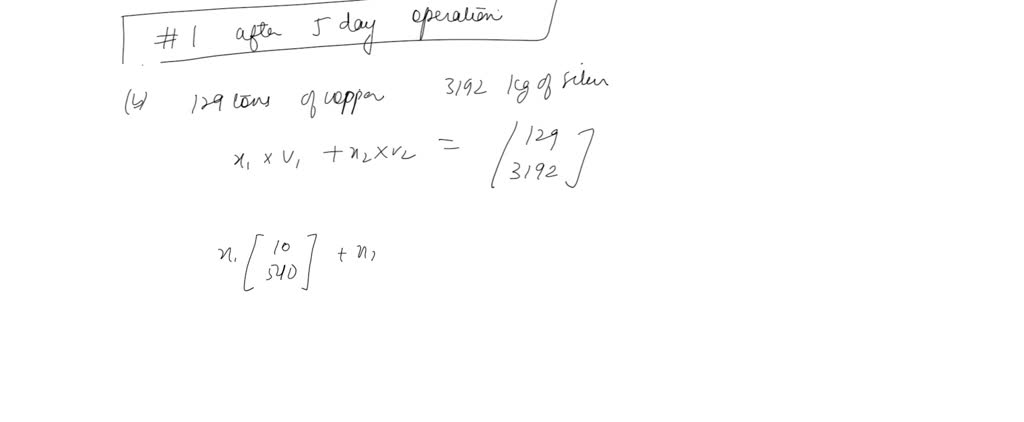 #1 after 5 day operation
(b) 129 tons of copper 3192 kg of silver
x₁ × v₁ + x₂ × v₂ = [129 3192]
x₁ [10 540] + x₂